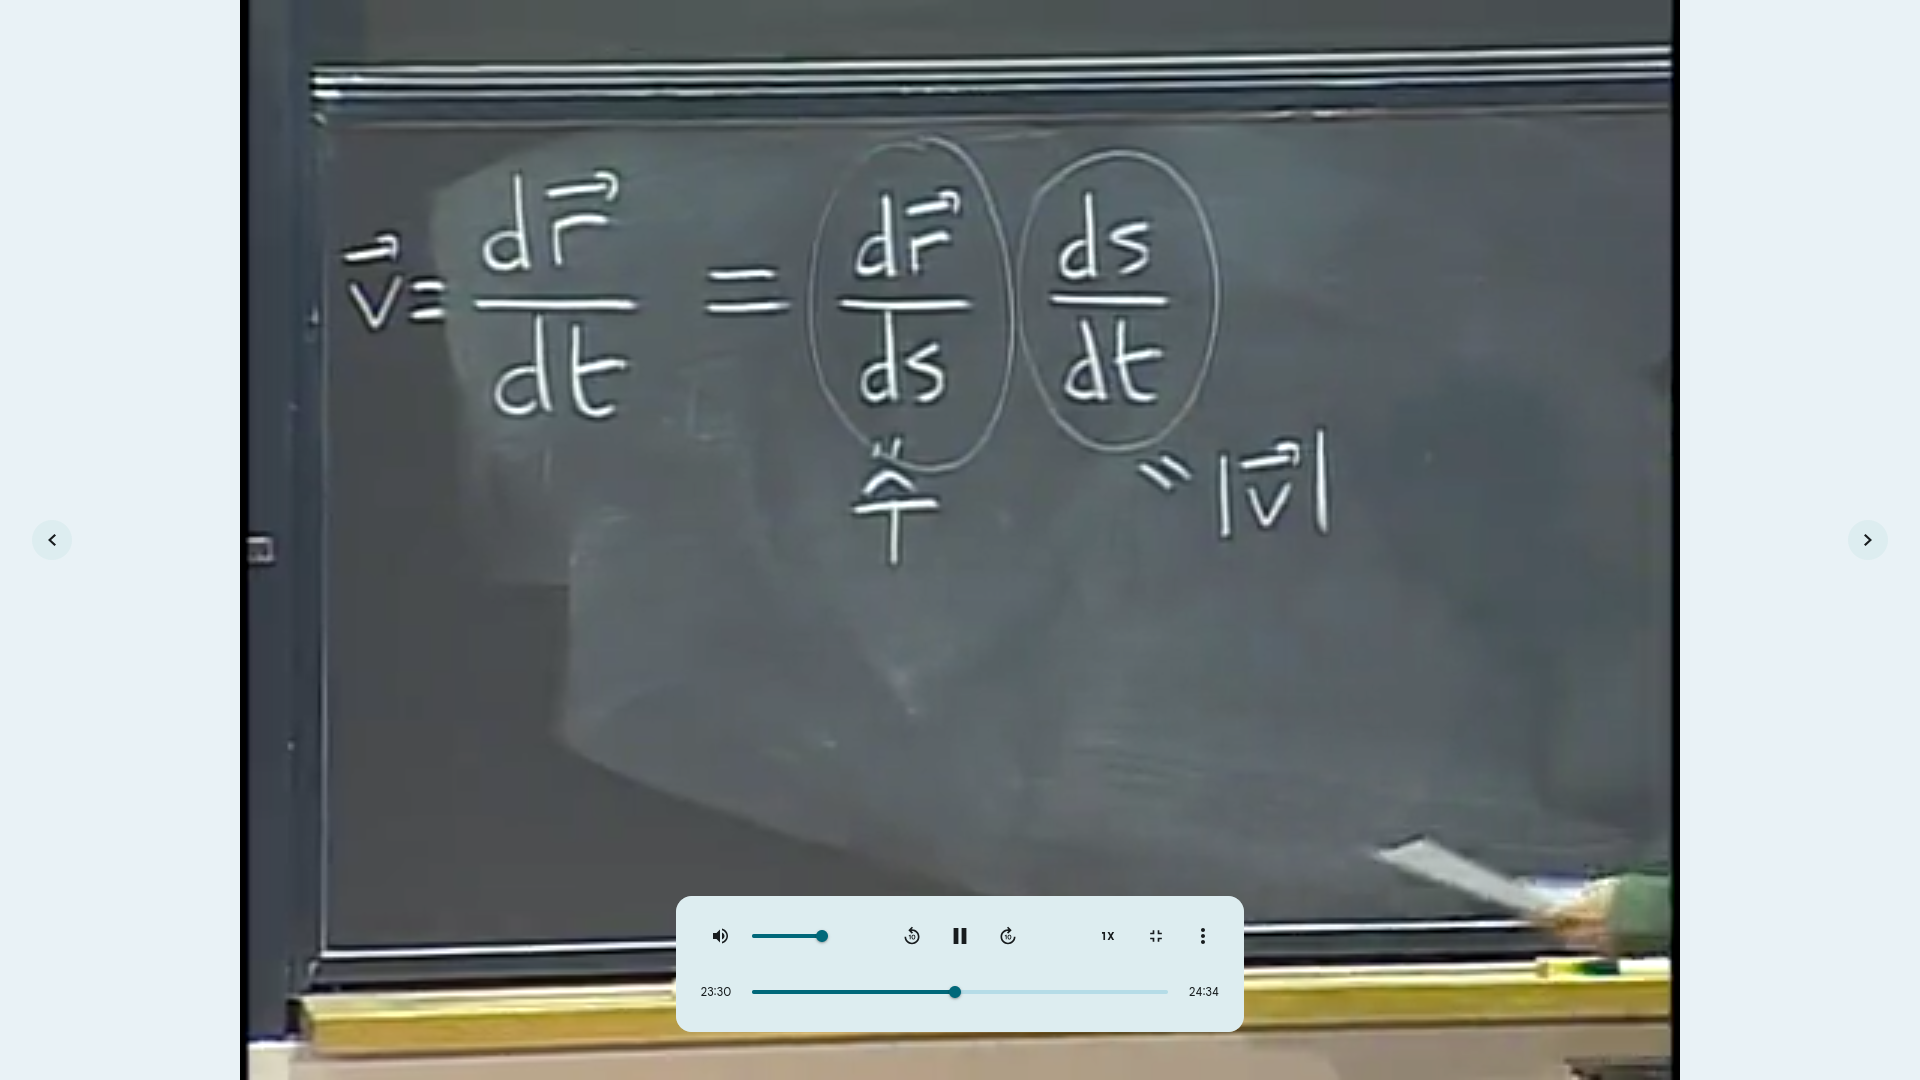 v⃗ = dr⃗/dt = dr⃗/ds ds/dt
= T̂
= |v⃗|
10 10 1X
23:30 24:34